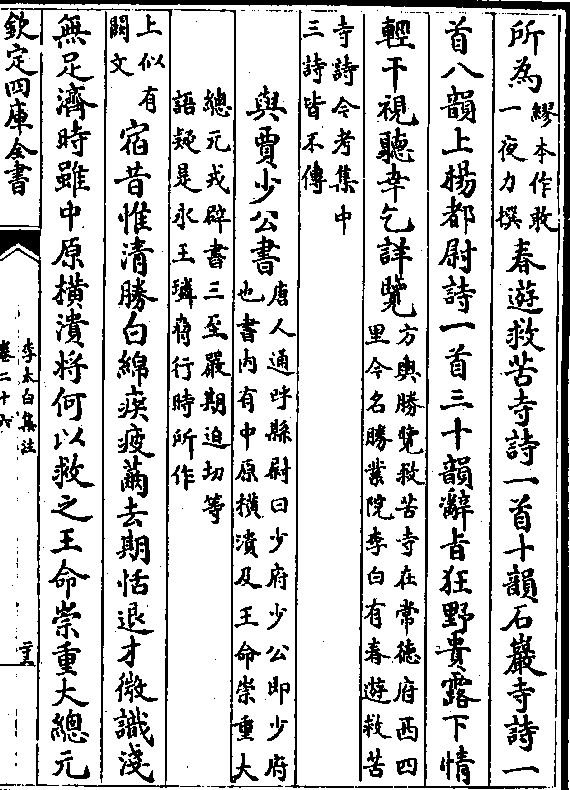 所為繆本作敢一夜力撰春遊救苦寺詩一首十韻石巖寺詩一
首八韻上楊都尉詩一首三十韻辭旨狂野貴露下情
輕干視聽幸乞詳覽方輿勝覽救苦寺在常徳府西四里今名勝業院李白有春遊救苦
寺詩今考集中三詩皆不傳
與賈少公書唐人通呼縣尉曰少府少公即少府也書内有中原横潰及王命崇重大
總元戎辟書三至嚴期迫切等語疑是永王璘將行時所作
宿昔惟清勝白綿疾疲薾去期恬退才微識淺上似有闕文
無足濟時雖中原横潰将何以救之王命崇重大總元
欽定四庫全書
李太白集注
卷二十六